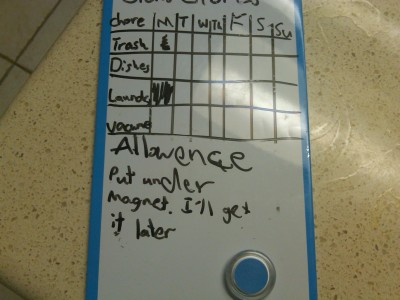 chore M T W Th F S Su
Trash
Dishes
Laundr
vacume
Allowence
Put under
magnet. I'll get
it later